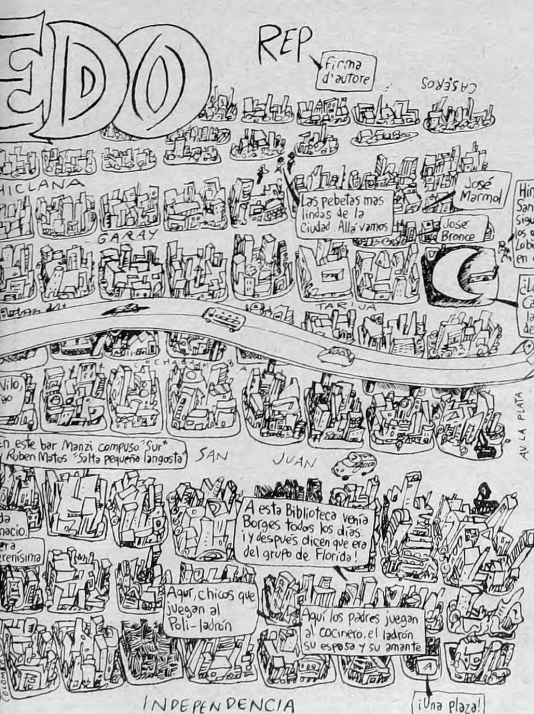 EDO
REP
firma
d'autore
CASEROS
HICLANA
Las pebetas mas
lindas de la
Ciudad. Allá vamos
José
Marmol
Jose
Bronce
GARAY
TARIJA
En este bar Manzi compuso "Sur"
Ruben Matos "Salta pequeña langosta"
SAN JUAN
AV LA PLATA
A esta Biblioteca venía
Borges todos los días.
¡y después dicen que era
del grupo de Florida!
Aquí, chicos que
juegan al
Poli-ladrón
Aquí los padres juegan
al cocinero, el ladrón
su esposa y su amante
INDEPENDENCIA
¡Una plaza!